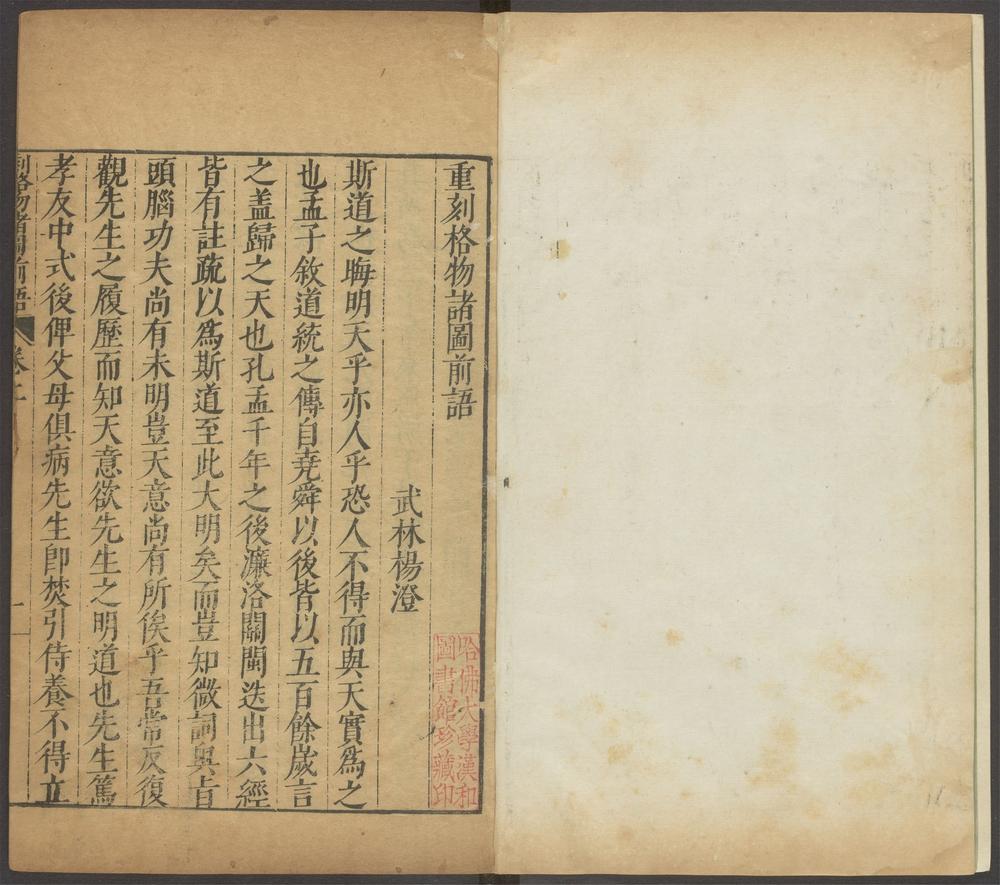 重刻格物諸圖前語
武林楊澄
斯道之晦明天乎亦人乎恐人不得而與天實為之
也孟子敘道統之傳自堯舜以後皆以五百餘歲言
之盖歸之天也孔孟千年之後濂洛關閩迭出六經
皆有註疏以為斯道至此大明矣而豈知微詞奥旨
頭腦功夫尚有未明豈天意尚有所俟乎吾常反復
觀先生之履歷而知天意欲先生之明道也先生篤
孝友中式後俾父母俱病先生卽焚引侍養不得立
格物諸圖前語
哈佛大學漢和
圖書館珍藏印